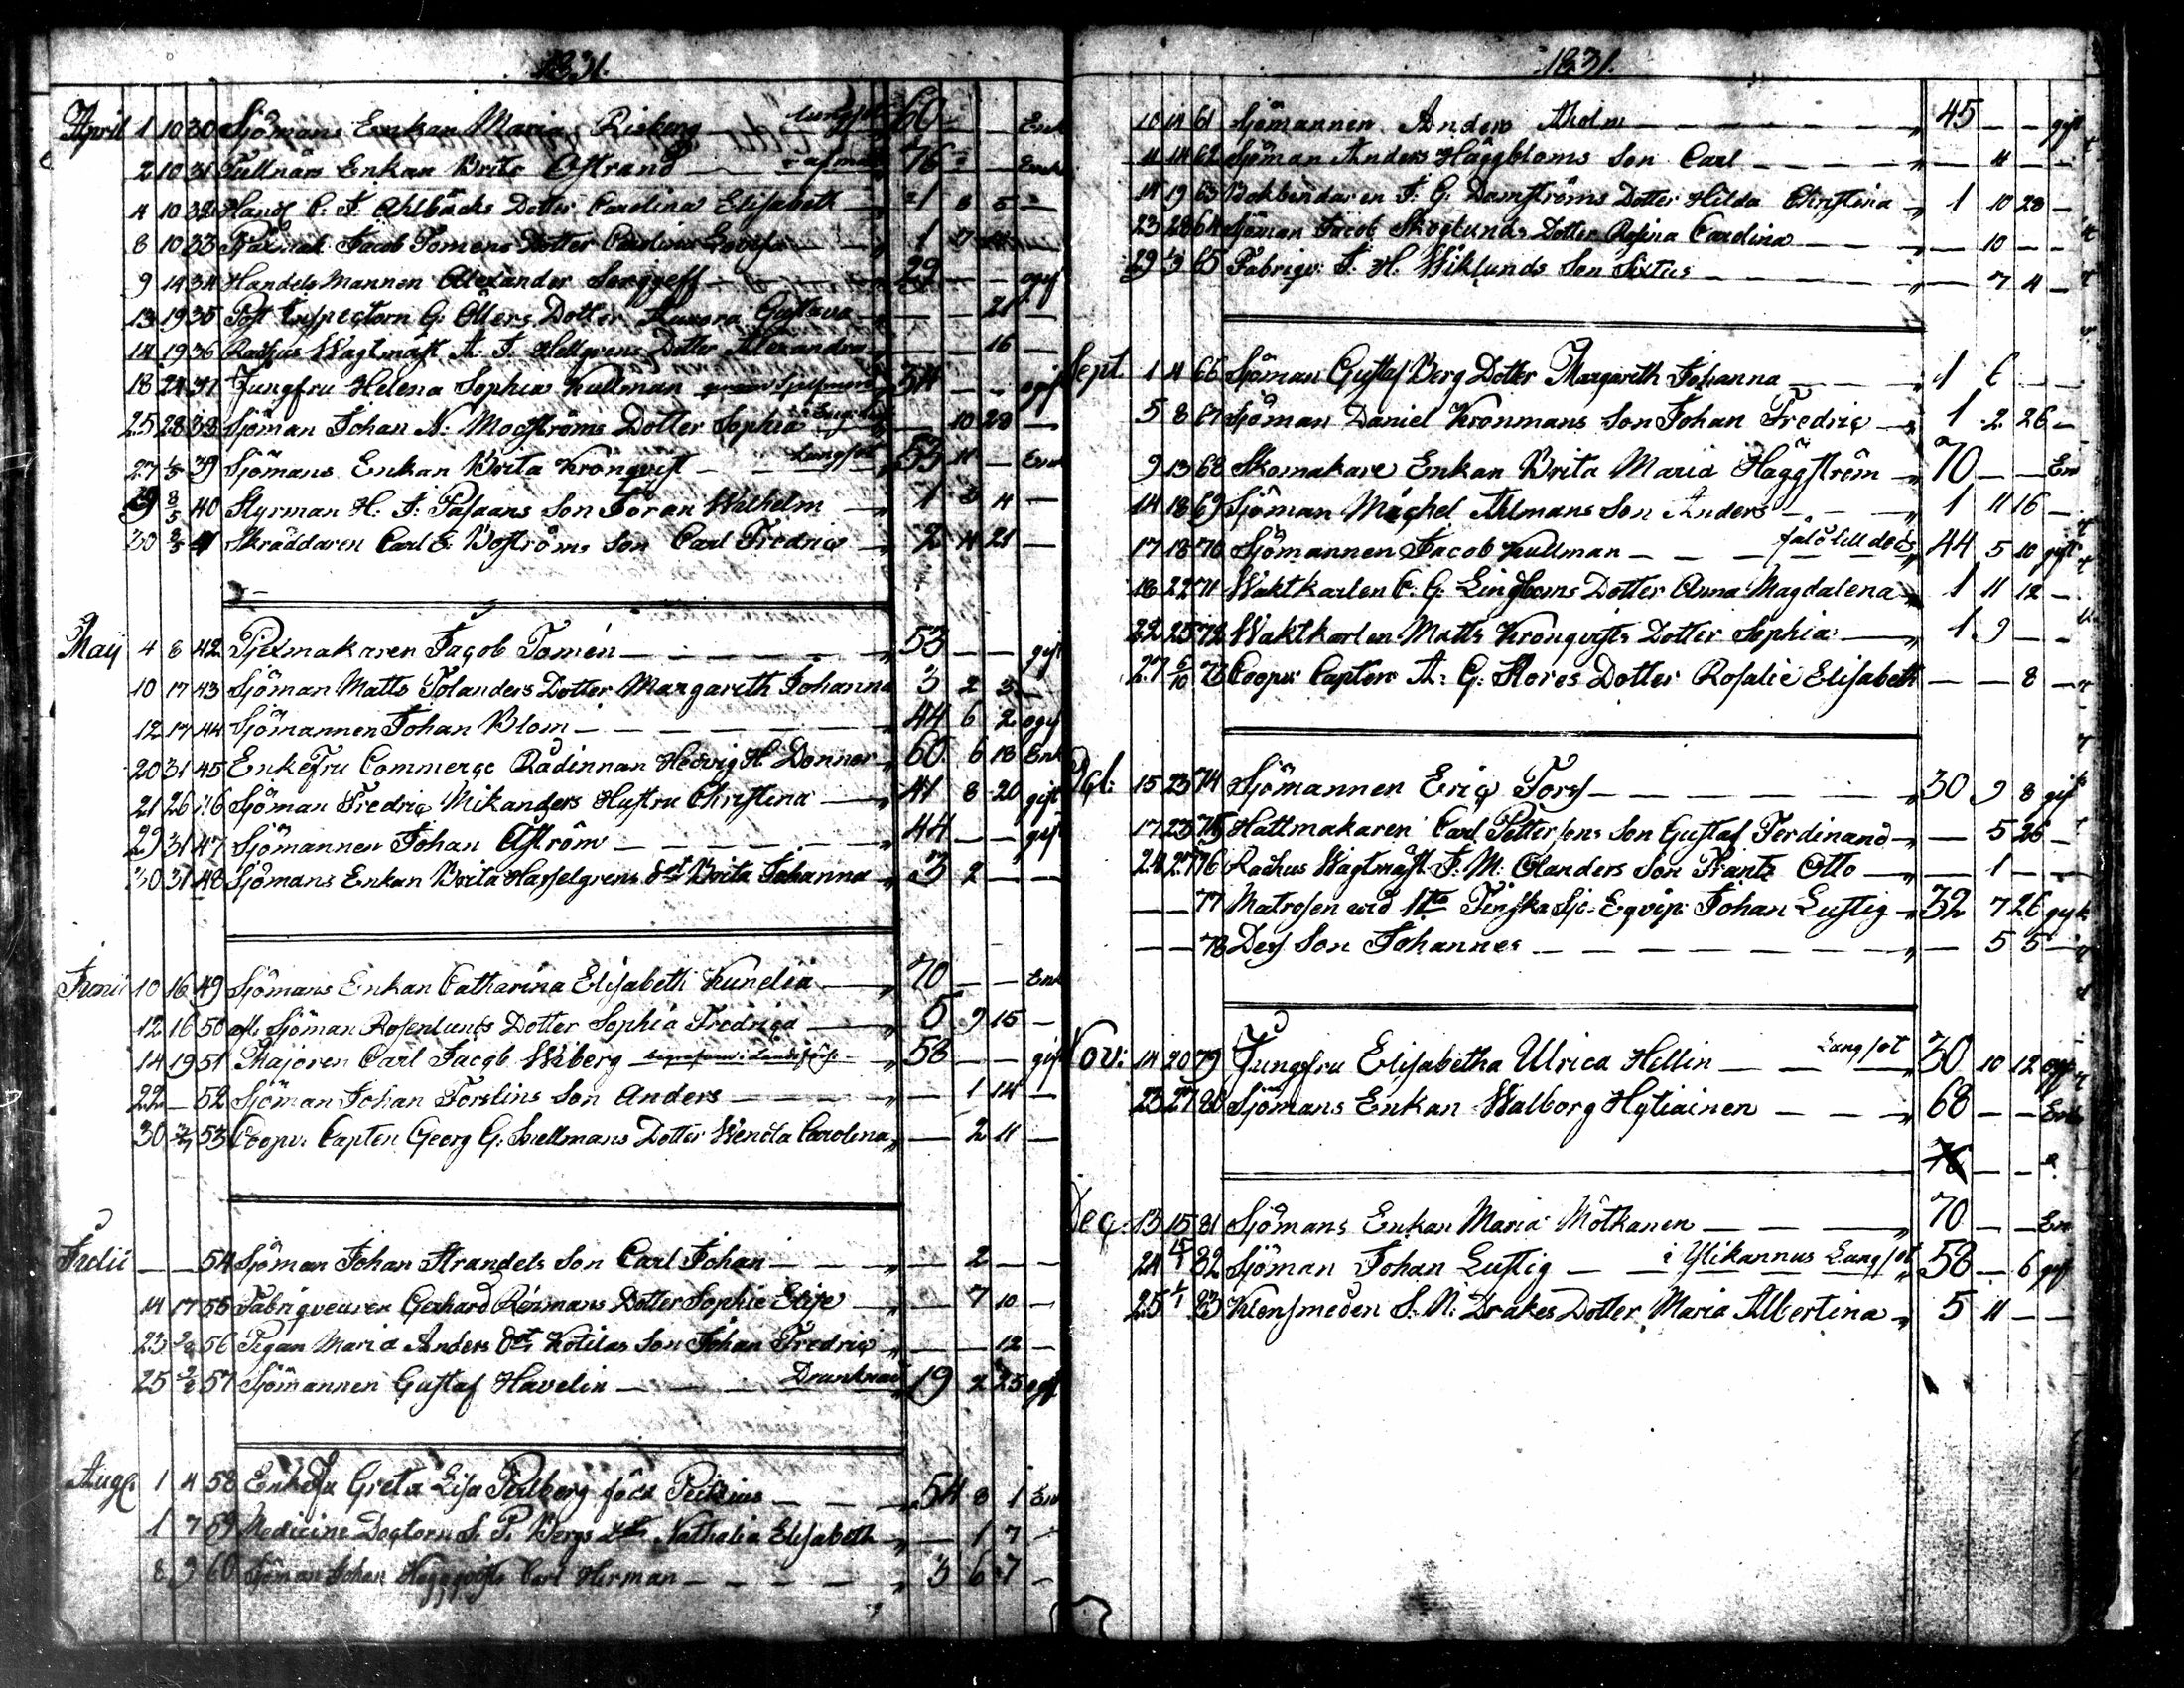 1831.
April 1 10 30 Sjömans Enkan Maria Risberg Lungsot 60 — — Enk
2 10 31 Tullnärs Enkan Brita Åstrand 76 — — Enk
4 10 32 Handl C. J. Ahlbäcks Dotter Carolina Elisabeth 1 8 5 —
8 10 33 Jacob Tomens Dotter Carolina Lovisa 1 7
9 14 34 Handels Mannen Alexander 29 — — ogif
13 19 35 Post Inspectorn G. Öllers Dotter Aurora Gustava — — 21 —
14 19 36 Rådhus Wagtmäst. A. J. Hellgrens Dotter Alexandra — — 16 —
18 24 37 Jungfru Helena Sophia Kullman 34 — — ogif
25 28 38 Sjöman Johan N. Moströms Dotter Sophia — 10 28 —
27 1/5 39 Sjömans Enkan Brita Krönqvist Lungsot 53 11 — Enk
29 3/5 40 Styrman H. J. Son Göran Wilhelm 1 3 4 —
30 3/5 41 Skräddaren Carl E. Boströms Son Carl Fredric 2 4 21 —
Maij 4 8 42 Spelmakaren Jacob Tomén 53 — — gift
10 17 43 Sjöman Matts Tolanders Dotter Margareth Johanna 3 2 3 —
12 17 44 Sjömannen Johan Blom 44 6 2 ogif
20 31 45 EnkeFru Commerce Rådinnan Hedvig H. Donner 60 6 18 Enk
21 26 46 Sjöman Fredric Mikanders Hustru Christina 41 8 20 gift
29 31 47 Sjömannen Johan Åström 44 — — gift
30 31 48 Sjömans Enkan Brita Hasselgrens dot Brita Johanna 3 2 — —
Junii 10 16 49 Sjömans Enkan Catharina Elisabeth Kunelia 70 — — Enk
12 16 50 afl. Sjöman Rosenlunds Dotter Sophia Fredrica 5 9 15 —
14 19 51 Majoren Carl Jacob Wiberg 58 — — gif
22 — 52 Sjöman Johan Forslins Son Anders — 1 14 —
30 3/7 53 Coopv. Capten Georg G. Snellmans Dotter Wendla Carolina — 2 11 —
Julii — — 54 Sjöman Johan Strandels Son Carl Johan — 2 — —
14 17 55 Fabriqveuren Gerhard Reimans Dotter Sophie Elise — 7 10 —
23 2/8 56 Pigan Maria Anders dot Kotilas Son Johan Fredric — — 12 —
25 2/8 57 Sjömannen Gustaf Havelin Drunknad 19 2 25 ogif
Aug. 1 4 58 EnkeFru Greta Lisa Perlberg född 54 8 1 Enk
1 7 59 Medicine Doctorn S. P. Bergs Nathalia Elisabeth — 1 7 —
8 9 60 Sjöman Johan Häggqvists Carl Herman 3 6 7 —
1831.
10 14 61 Sjömannen Anders Aholm 45 — — gift
11 14 62 Sjöman Anders Häggbloms Son Carl — 4 — —
14 19 63 Bokbindaren F. G. Damströms Dotter Hilda Christina 1 10 28 —
23 28 64 Sjöman Jacob Skoglunds Dotter Rosina Carolina — 10 — —
29 1/9 65 Fabriqv. J. H. Wiklunds Son Sixtus — 7 4 —
Sept. 1 4 66 Sjöman Gustaf Berg Dotter Margareth Johanna 1 6 — —
5 8 67 Sjöman Daniel Kronmans Son Johan Fredric 1 2 26 —
9 13 68 Skomakare Enkan Brita Maria Häggström 70 — — En
14 18 69 Sjöman Michel Ahlmans Son Anders 1 11 16 —
17 18 70 Sjömannen Jacob Kullman föll till död 44 5 10 gift
18 22 71 Waktkarlen C. G. Lindboms Dotter Anna Magdalena 1 11 12 —
22 25 72 Waktkarlen Matts Kronqvists Dotter Sophia 1 9 — —
27 6/10 73 Coopv: Capten A. G. Flores Dotter Rosalie Elisabeth — — 8 —
Oct: 15 23 74 Sjömannen Eric Forss 30 9 8 gif
17 23 75 Hattmakaren Carl Pettersons Son Gustaf Ferdinand — 5 26 —
24 27 76 Rådhus Wagtmäst. F. M. Olanders Son Frantz Otto — 1 — —
— — 77 Matrosen wid 1sta Finska Sjö-Eqvip: Johan Lustig 32 7 26 gift
— — 78 Dess Son Johannes — 5 5 —
Nov: 14 20 79 Jungfru Elisabetha Ulrica Hellin Lungsot 30 10 12 ogif
23 27 80 Sjömans Enkan Walborg Hytiainen 68 — — Enk
Dec: 13 15 81 Sjömans Enkan Maria Mötkanen 70 — — En
24 82 Sjöman Johan Lustig i Ylikannus Lungsot 58 — 6 gif
25 1/1 83 Klensmeden S. N. Drakes Dotter Maria Albertina 5 11 — —